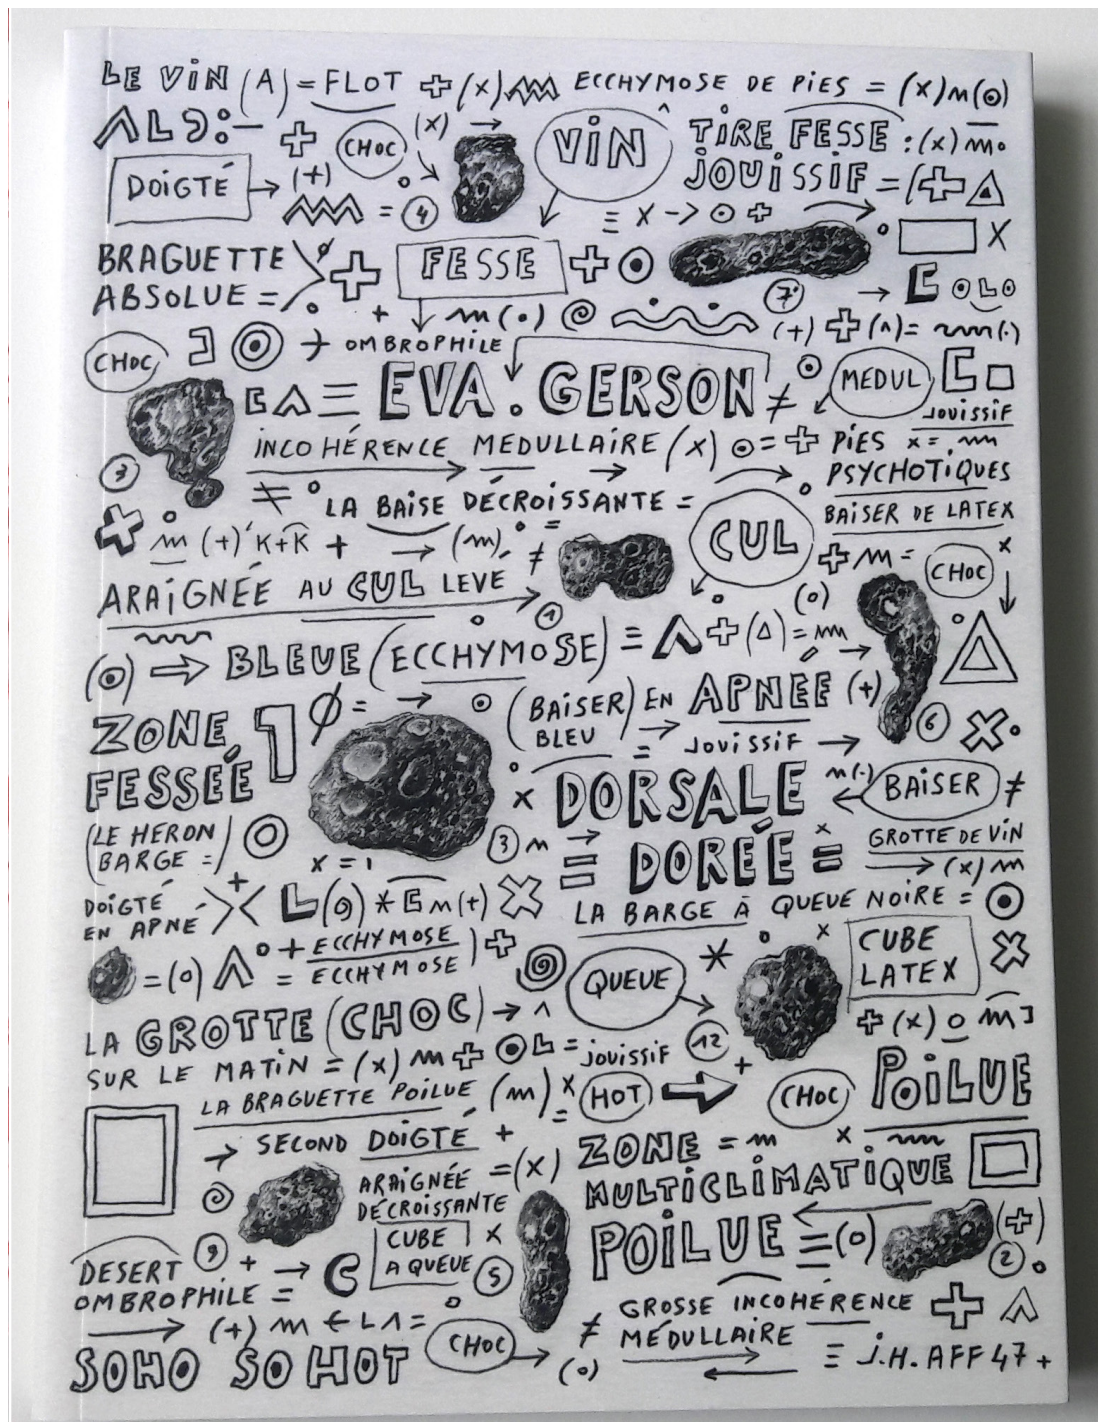 LE VIN (A) = FLOT + (X) ECCHYMOSE DE PIES = (X) M (O)
CHOC (X) → VIN TIRE FESSE : (X) M
DOIGTÉ → (+) = 4 JOUISSIF = (+
≡ X -> ⊙ +
BRAGUETTE ABSOLUE = + FESSE + ⊙ X
7 → C OLO
+ m (•) (+) + (^) = m(.)
CHOC ⊙ + OMBROPHILE
EVA. GERSON ≠ MEDUL
JOUISSIF
INCOHÉRENCE MEDULLAIRE (X) ⊙ = + PIES X =
3 → PSYCHOTIQUES
≠ ° LA BAISE DÉCROISSANTE =
CUL BAISER DE LATEX
m (+)' K+K + → (m) ≠ + m = CHOC X
ARAIGNÉE AU CUL LEVÉ 1
(O)
(⊙) ⇒ BLEUE (ECCHYMOSE) = Λ + (Δ) = m →
ZONE FESSÉE 1 Ø = → ⊙ (BAISER BLEU) EN APNÉE (+) 6 X
JOUISSIF →
X DORSALE m(.) BAISER ≠
(LE HERON BARGE =) O X = 1 3 m → = DORÉE = GROTTE DE VIN
→ (X) m
DOIGTÉ EN APNÉ >< + L (O) * E m (+) X
LA BARGE À QUEUE NOIRE = ⊙
= (O) Λ ° + ECCHYMOSE ) +
= ECCHYMOSE
QUEUE * X CUBE LATEX X
LA GROTTE (CHOC) → ^
12 + (X) O m
SUR LE MATIN = (X) m + ⊙ L = JOUISSIF
LA BRAGUETTE POILUE (m) X = HOT ⇒ + CHOC POILUE
→ SECOND DOIGTÉ + ZONE = m X
ARAIGNÉE DÉCROISSANTE = (X) MULTICLIMATIQUE
CUBE A QUEUE X 5 POILUE = (O) (+) 2
DESERT 9 + → C
OMBROPHILE =
GROSSE INCOHÉRENCE + Λ
→ (+) m ← L Λ = CHOC → ≠ MÉDULLAIRE
SOHO SO HOT (O) ≡ J.H. AFF 47 +